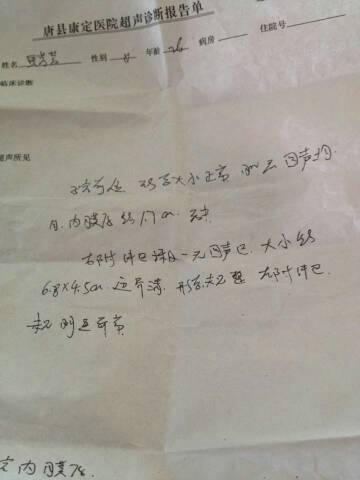 唐县康定医院超声诊断报告单
姓名 性别 女 年龄 26 病房 — 住院号
临床诊断
超声所见
子宫前位 形态大小正常 回声均
匀.内膜厚约1.7cm.
右附件区 一无回声区.大小约
6.8×4.5cm 边界清,形态 整 左附件区.
未 明显异常
内膜厚.